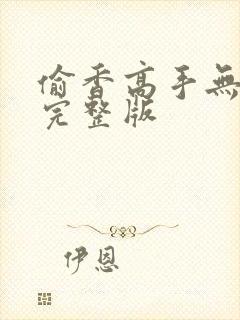 偷香高手無
完整版
伊恩